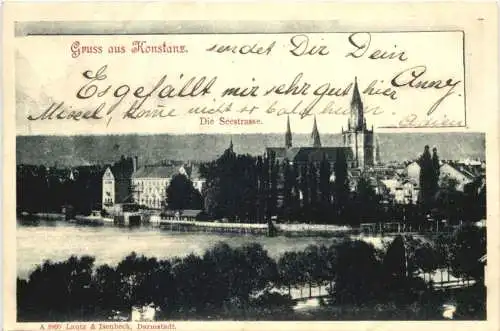 Gruss aus Konstanz. sendet Dir Dein
Es gefällt mir sehr gut hier Anny
komme nicht so bald heim.
Die Seestrasse. Adieu
A 1960 Lautz & Isenbeck, Darmstadt.